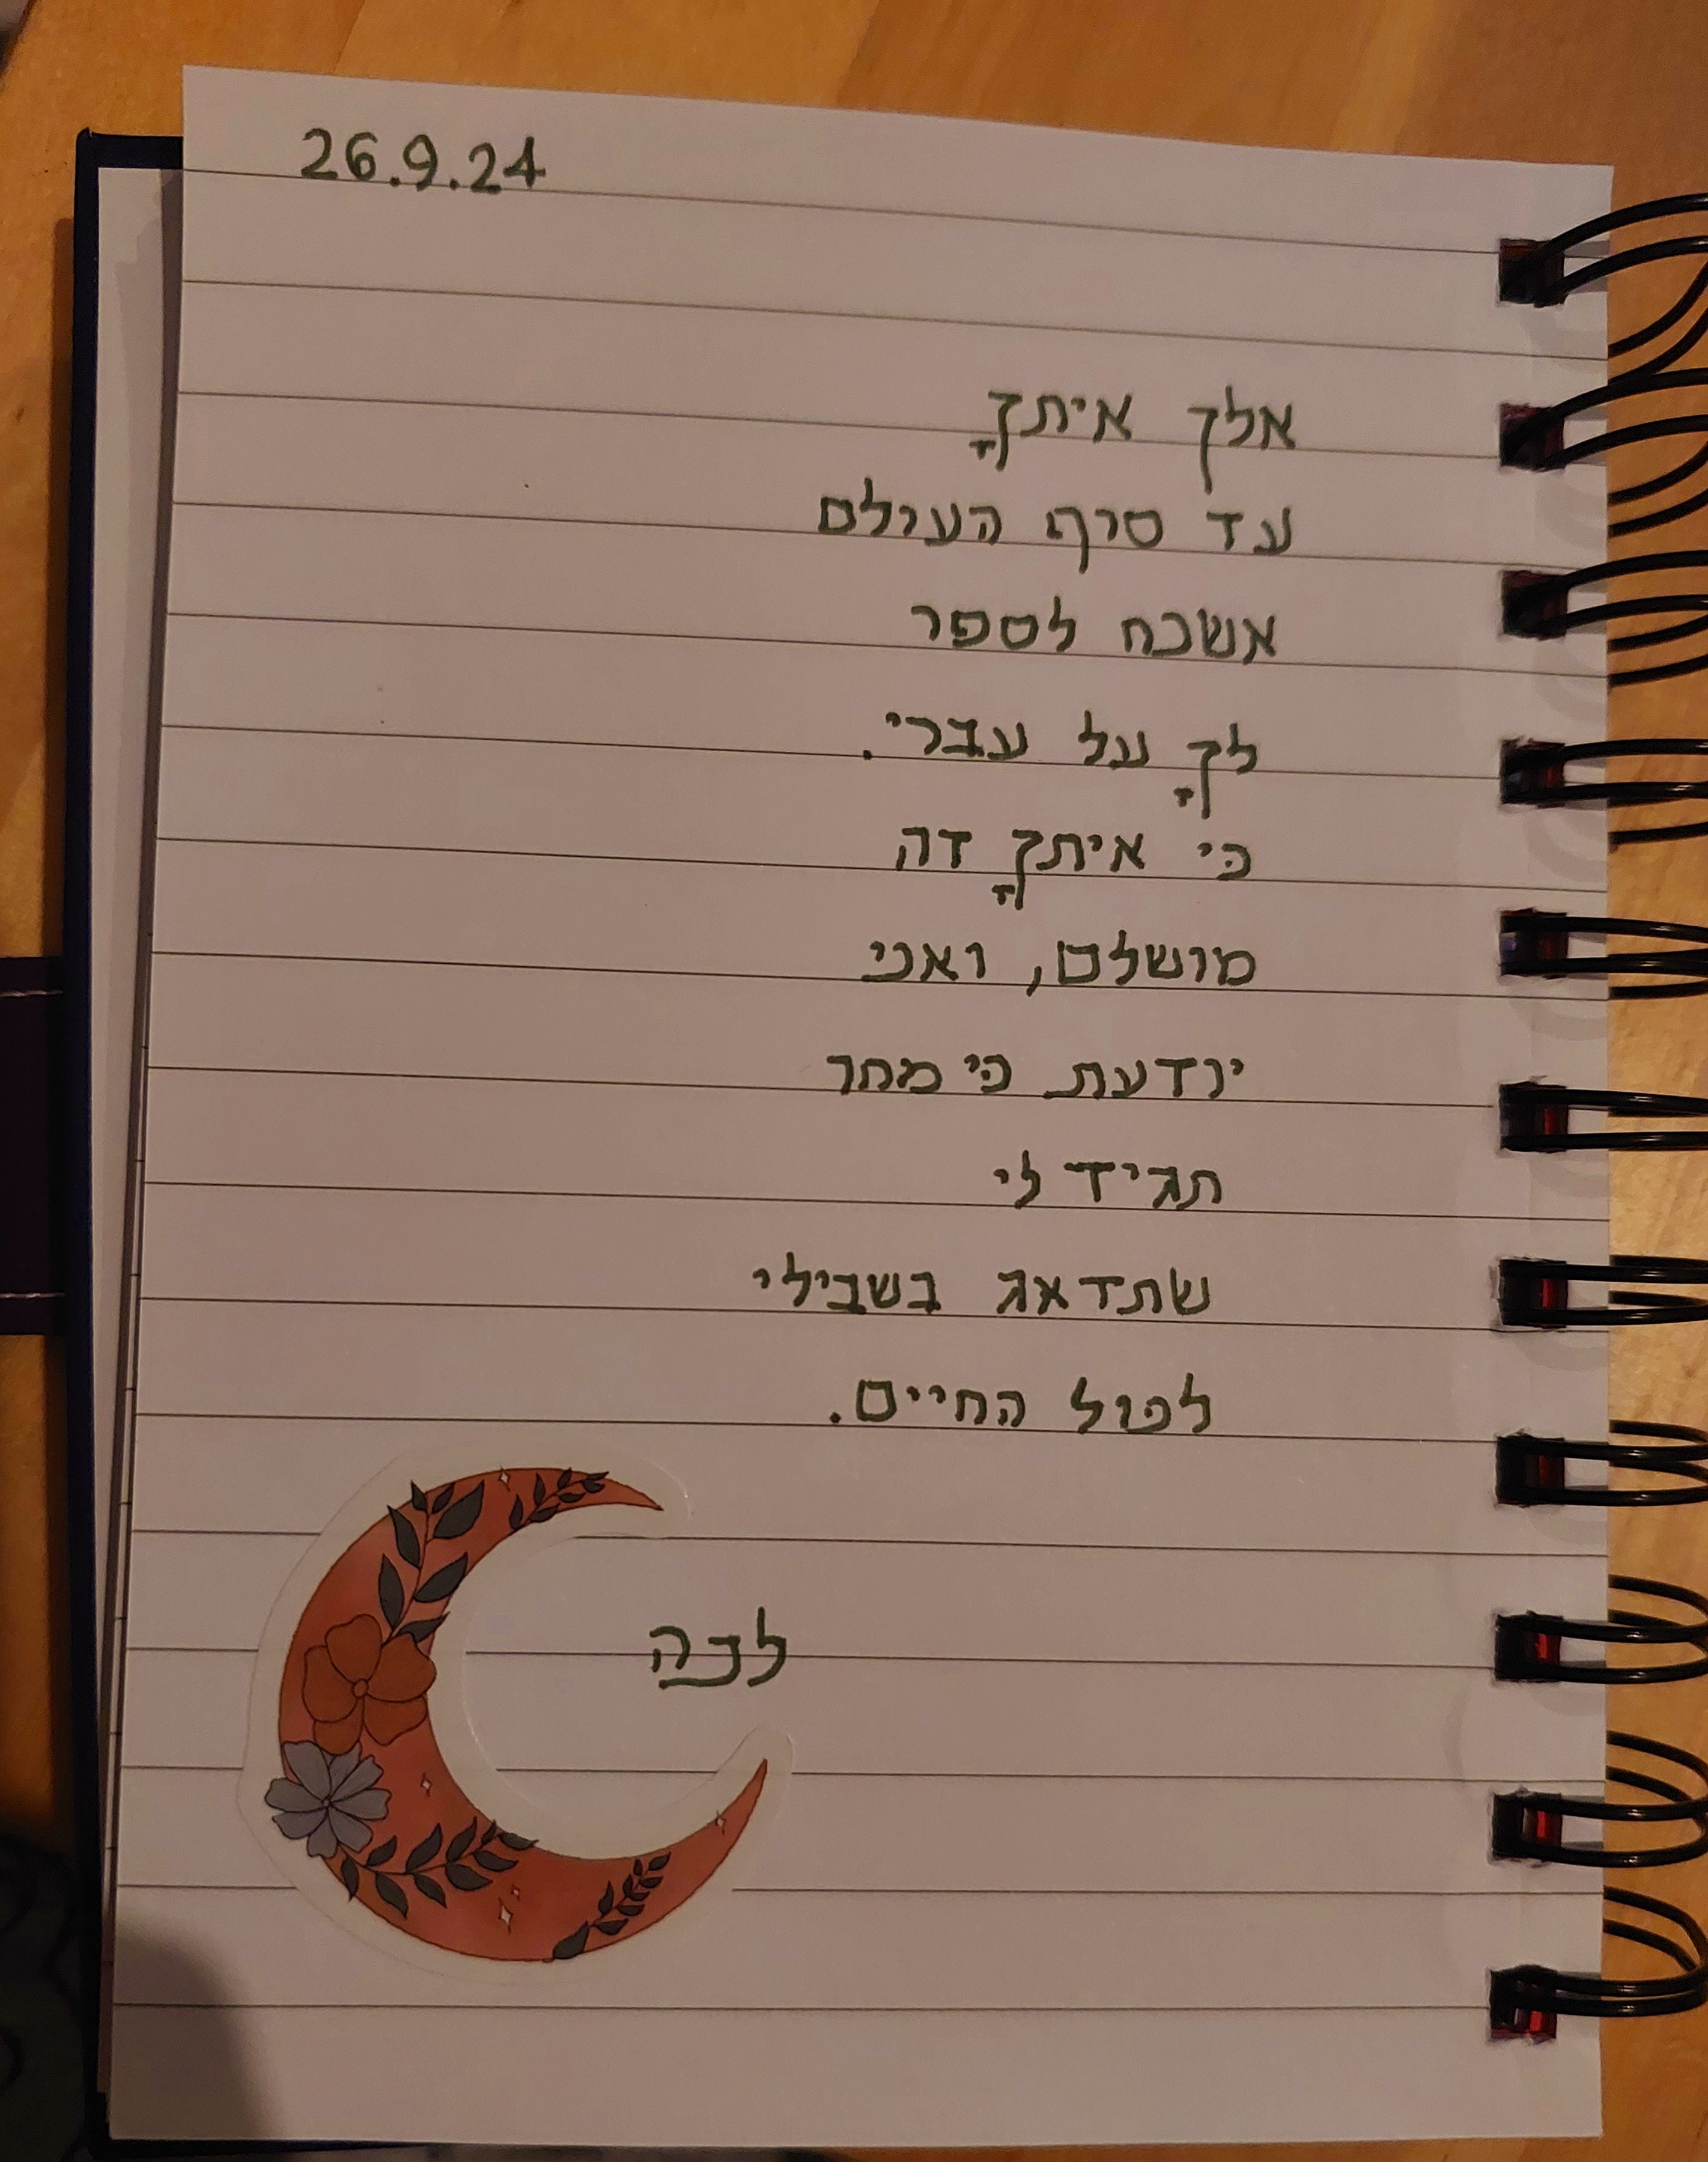 26.9.24
אלך איתךָ
עד סוף העולם
אשכח לספר
לךָ על עברי.
כי איתךָ זה
מושלם, ואני
יודעת כי מחר
תגיד לי
שתדאג בשבילי
לכול החיים.
לנה